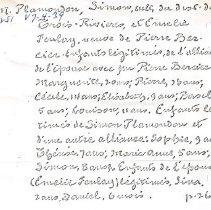 M. Plamondon, Simon, cult. du dist. de
Trois-Rivières, et Emelie
Feulay, veuve de Pierre Ber-
cier. Enfants légitimes, de l'allian
de l'épouse avec feu Pierre Bercier
Marguerite, ans, Pierre, ans,
Cécile, ans, Elisabeth, 9 ans, Basel
5 ans, Louison, ans. Enfants lé-
times de Simon Plamondon et
d'une autre alliance: Sophie, 9 an
Thérèse, 7 ans, Marie Anne, 5 ans,
Simon, 2 ans. Enfants de l'épou
(Emelie Feulay) légitimes, Lina,
2 ans, Daniel, 6 mois. p.26